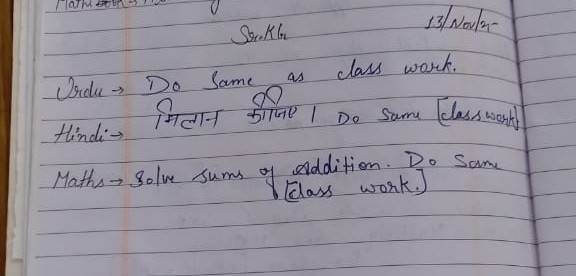 Sr. KG 13/Nov/25
Urdu → Do Same as class work.
Hindi → मिलान कीजिए । Do Same [class work]
Maths → Solve sums of addition. Do Same
[class work.]